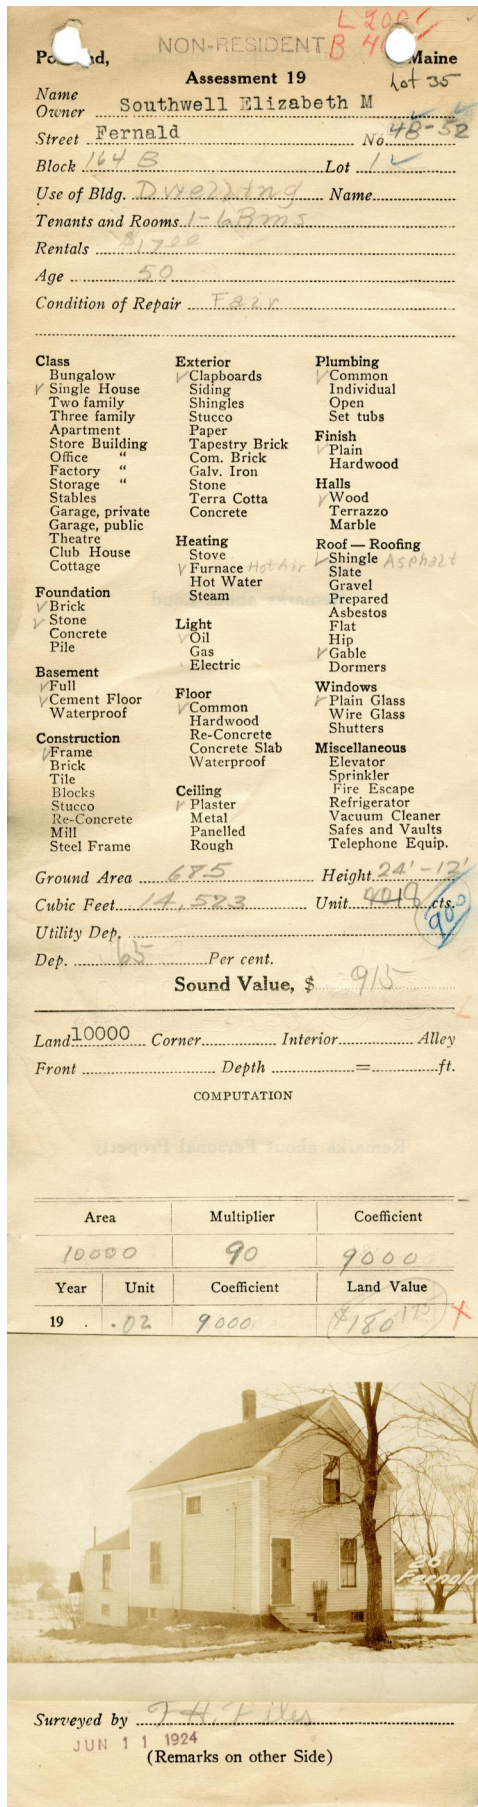 L 200
NON-RESIDENT B 4
Portland, Maine
Assessment 19 Lot 35
Name
Owner Southwell Elizabeth M
Street Fernald No. 48-52
Block 164 B Lot 1
Use of Bldg. Dwelling Name
Tenants and Rooms 1-6Rms
Rentals $17.00
Age 50
Condition of Repair Fair
Class
Bungalow
✓ Single House
Two family
Three family
Apartment
Store Building
Office "
Factory "
Storage "
Stables
Garage, private
Garage, public
Theatre
Club House
Cottage
Foundation
✓ Brick
✓ Stone
Concrete
Pile
Basement
✓ Full
✓ Cement Floor
Waterproof
Construction
✓ Frame
Brick
Tile
Blocks
Stucco
Re-Concrete
Mill
Steel Frame
Exterior
✓ Clapboards
Siding
Shingles
Stucco
Paper
Tapestry Brick
Com. Brick
Galv. Iron
Stone
Terra Cotta
Concrete
Heating
Stove
✓ Furnace Hot Air
Hot Water
Steam
Light
✓ Oil
Gas
Electric
Floor
✓ Common
Hardwood
Re-Concrete
Concrete Slab
Waterproof
Ceiling
✓ Plaster
Metal
Panelled
Rough
Plumbing
✓ Common
Individual
Open
Set tubs
Finish
✓ Plain
Hardwood
Halls
✓ Wood
Terrazzo
Marble
Roof — Roofing
✓ Shingle Asphalt
Slate
Gravel
Prepared
Asbestos
Flat
Hip
✓ Gable
Dormers
Windows
✓ Plain Glass
Wire Glass
Shutters
Miscellaneous
Elevator
Sprinkler
Fire Escape
Refrigerator
Vacuum Cleaner
Safes and Vaults
Telephone Equip.
Ground Area 685 Height 24'-12'
Cubic Feet 14,523 Unit 18 cts. 900
Utility Dep.
Dep. 65 Per cent.
Sound Value, $ 915
Land 10000 Corner Interior Alley
Front Depth = ft.
COMPUTATION
Area Multiplier Coefficient
10000 90 9000
Year Unit Coefficient Land Value
19 . .02 9000 $180 175 X
26
Fernald
Surveyed by
JUN 11 1924
(Remarks on other Side)